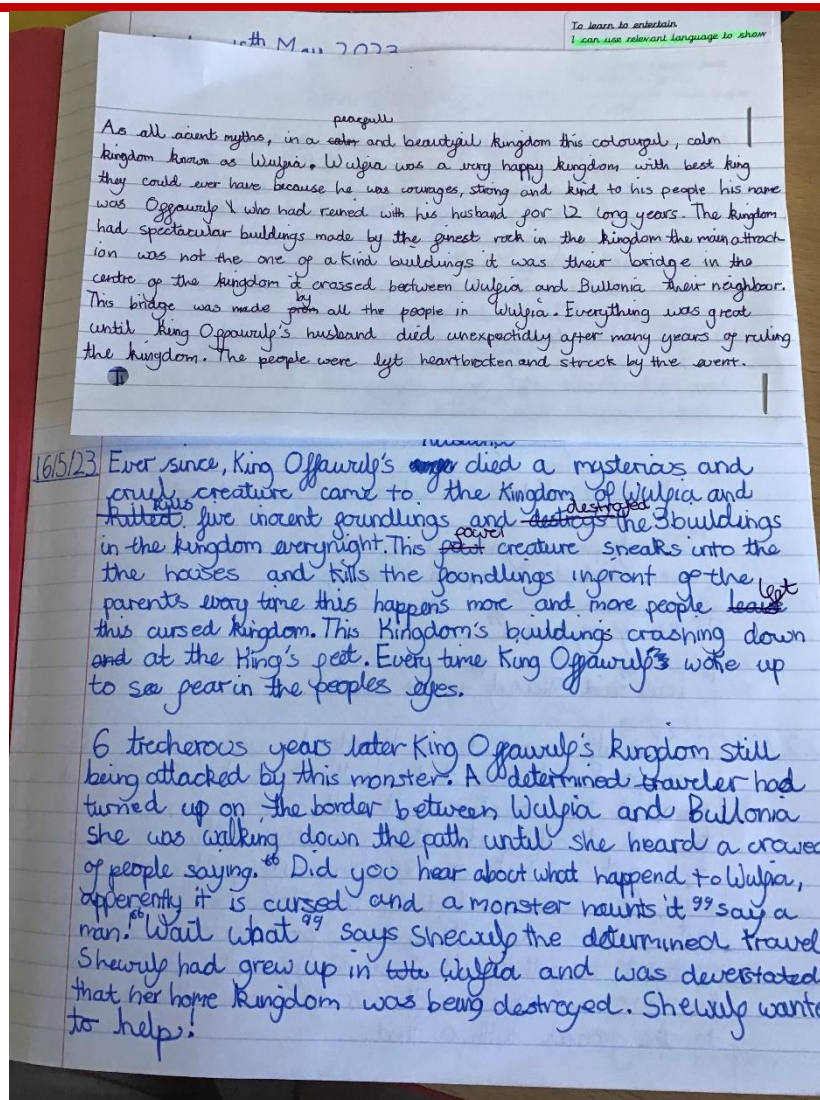 To learn to entertain
I can use relevant language to show
th May 2023
peacefull
As all acient myths, in a calm and beautyful kingdom this colourful, calm
kingdom known as Wulfia. Wulfia was a very happy kingdom with best king
they could ever have because he was courages, strong and kind to his people his name
was Offawulf who had reined with his husband for 12 long years. The kingdom
had spectacular buildings made by the finest rock in the kingdom the main attract
ion was not the one of a kind buildings it was their bridge in the
centre of the kingdom it crassed bectween Wulfia and Bullonia their neighbour.
by
This bridge was made from all the people in Wulfia. Everything was great
until King Offawulf's husband died unexpectidly after many years of ruling
the kingdom. The people were left heartbrocken and struck by the event.
16/5/23 Ever since, King Offawulf's died a mysterias and
cruel creature came to the Kingdom of Wulfia and
kills destroyed
killed five inocent foundlings and destroys the 3 buildings
in the kingdom everynight. This creature sneaks into the
the houses and kills the foundlings infront of the
left
parents every time this happens more and more people
this cursed kingdom. This Kingdom's buildings crashing down
and at the King's feet. Every time King Offawulf's woke up
to see fear in the peoples eyes.
6 trecherous years later King Offawulf's kingdom still
being attacked by this monster. A determined traveler had
turned up on the border between Wulfia and Bullonia
she was walking down the path until she heard a crowed
of people saying. "Did you hear about what happend to Wulfia,
apperently it is cursed and a monster haunts it" say a
man. "Wait what" says Shewulf the determined travel
Shewulf had grew up in Wulfia and was deverstated
that her home kingdom was being destroyed. Shewulf wante
to help!